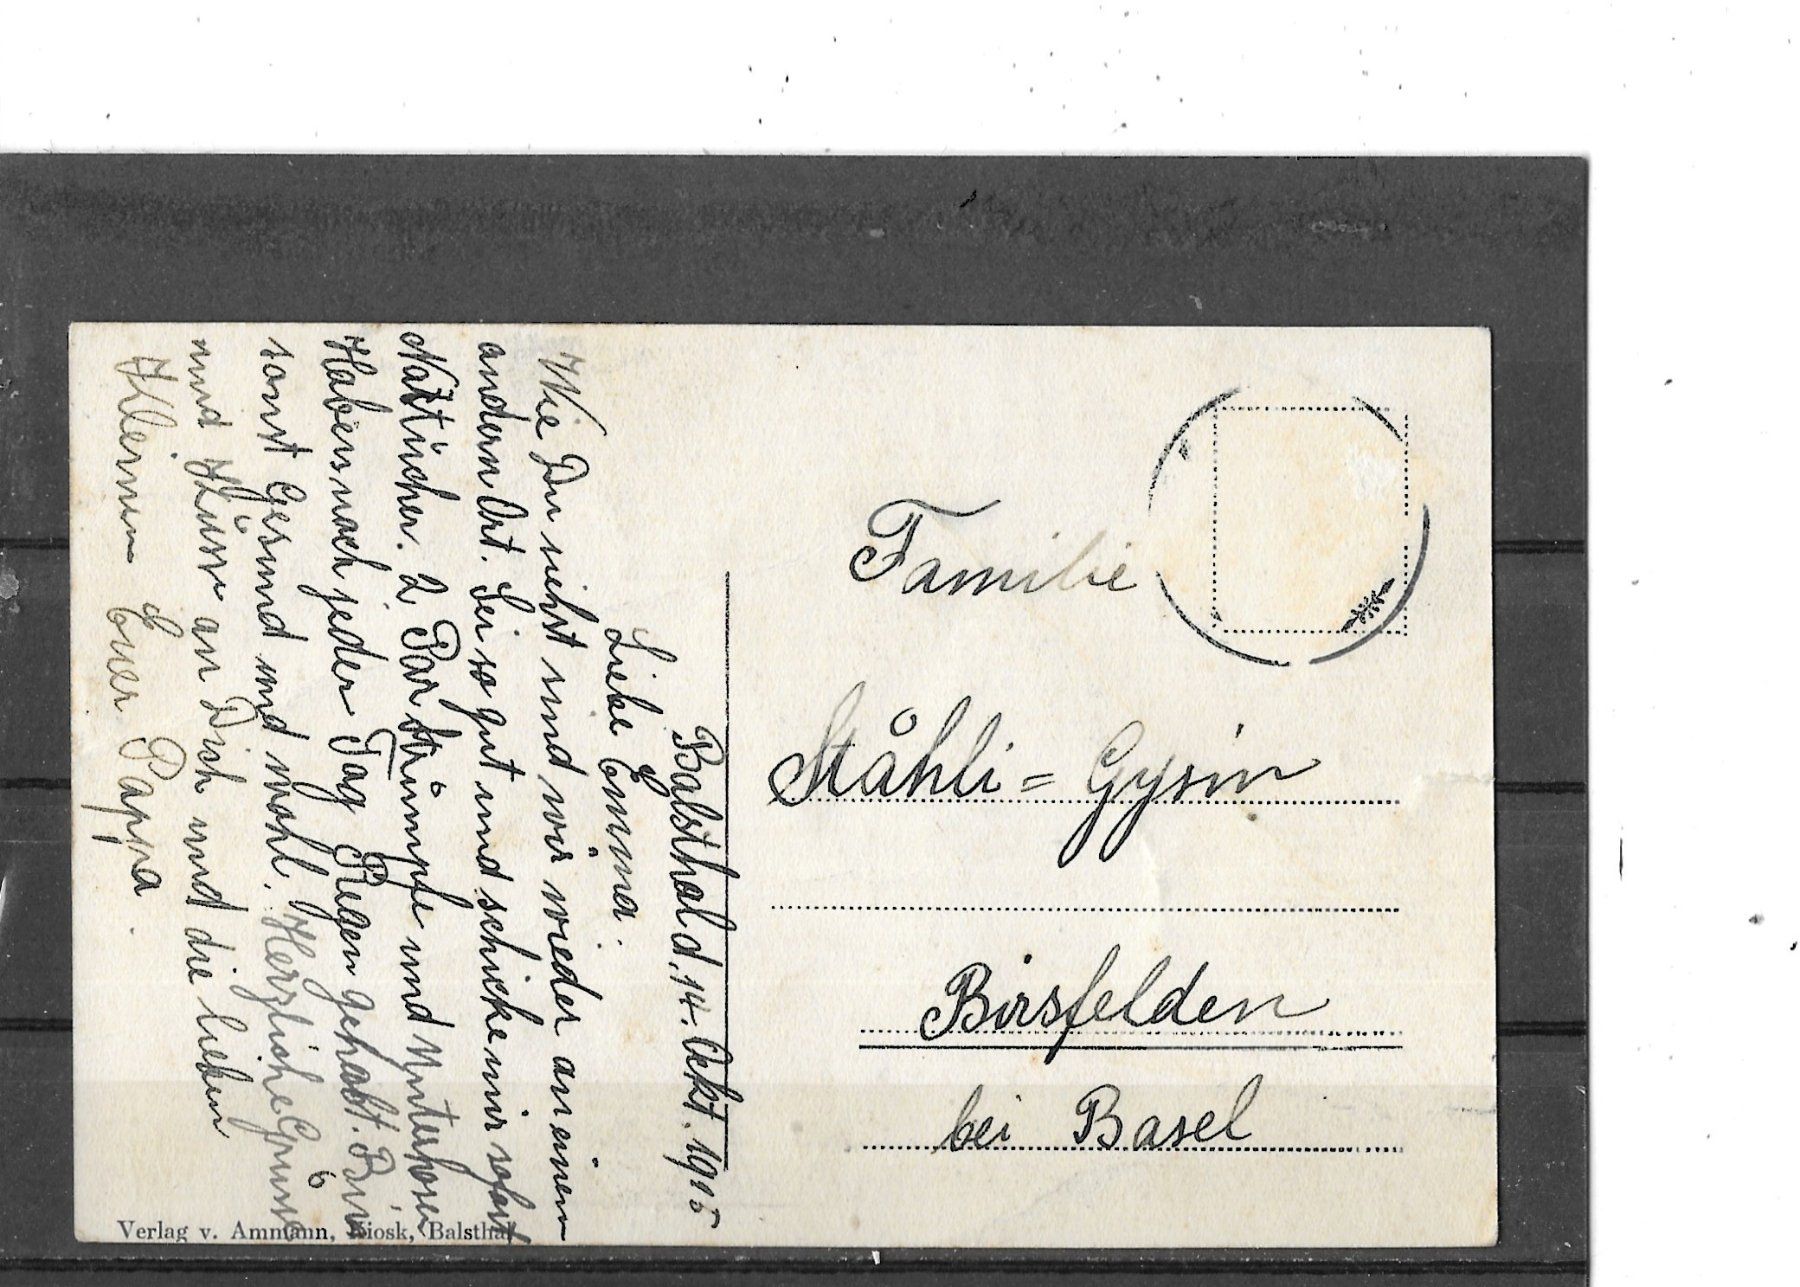 Balsthal d. 14. Okt. 1915
Liebe Emma.
Wie Du siehst sind wir wieder an einem
andern Ort. Sei so gut und schicke mir sofort
Nastücher. 2 Par Strümpfe und Unterhosen
Haben noch jeder Tag Regen gehabt. Bin
sonst Gesund und wohl. Herzliche Grüsse
und Küsse an Dich und die lieben
Kleinen Euer Pappa.
Familie
Ståhli = Gysin
Birsfelden
bei Basel
Verlag v. Ammann, Kiosk, Balsthal